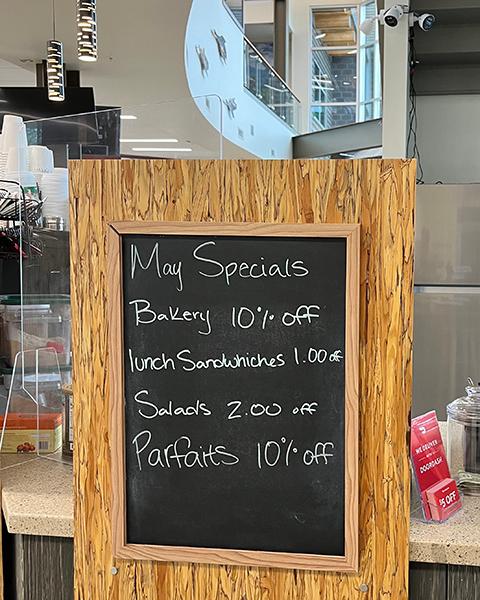 May Specials
Bakery 10% off
lunch Sandwhiches 1.00 off
Salads 2.00 off
Parfaits 10% off
WE DELIVER
WITH
DOORDASH
$5 OFF